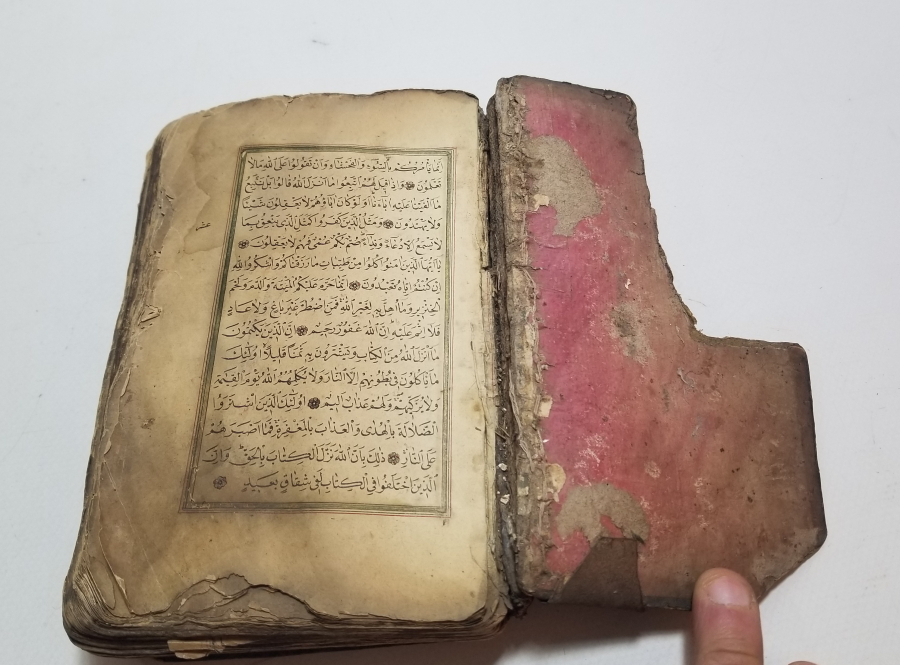 اِنَّمَا يَأْمُرُكُمْ بِالسُّوءِ وَالْفَحْشَاءِ وَاَنْ تَقُولُوا عَلَى اللهِ مَا لَا
تَعْلَمُونَ وَاِذَا قِيلَ لَهُمُ اتَّبِعُوا مَا اَنْزَلَ اللهُ قَالُوا بَلْ نَتَّبِعُ
مَا اَلْفَيْنَا عَلَيْهِ اٰبَاءَنَا اَوَلَوْ كَانَ اٰبَاؤُهُمْ لَا يَعْقِلُونَ شَيْئًا
وَلَا يَهْتَدُونَ وَمَثَلُ الَّذِينَ كَفَرُوا كَمَثَلِ الَّذِي يَنْعِقُ بِمَا
لَا يَسْمَعُ اِلَّا دُعَاءً وَنِدَاءً صُمٌّ بُكْمٌ عُمْيٌ فَهُمْ لَا يَعْقِلُونَ
يَا اَيُّهَا الَّذِينَ اٰمَنُوا كُلُوا مِنْ طَيِّبَاتِ مَا رَزَقْنَاكُمْ وَاشْكُرُوا لِلّٰهِ
اِنْ كُنْتُمْ اِيَّاهُ تَعْبُدُونَ اِنَّمَا حَرَّمَ عَلَيْكُمُ الْمَيْتَةَ وَالدَّمَ وَلَحْمَ
الْخِنْزِيرِ وَمَا اُهِلَّ بِهِ لِغَيْرِ اللهِ فَمَنِ اضْطُرَّ غَيْرَ بَاغٍ وَلَا عَادٍ
فَلَا اِثْمَ عَلَيْهِ اِنَّ اللهَ غَفُورٌ رَحِيمٌ اِنَّ الَّذِينَ يَكْتُمُونَ
مَا اَنْزَلَ اللهُ مِنَ الْكِتَابِ وَيَشْتَرُونَ بِهِ ثَمَنًا قَلِيلًا اُولٰئِكَ
مَا يَأْكُلُونَ فِي بُطُونِهِمْ اِلَّا النَّارَ وَلَا يُكَلِّمُهُمُ اللهُ يَوْمَ الْقِيٰمَةِ
وَلَا يُزَكِّيهِمْ وَلَهُمْ عَذَابٌ اَلِيمٌ اُولٰئِكَ الَّذِينَ اشْتَرَوُا
الضَّلَالَةَ بِالْهُدٰى وَالْعَذَابَ بِالْمَغْفِرَةِ فَمَا اَصْبَرَهُمْ
عَلَى النَّارِ ذٰلِكَ بِاَنَّ اللهَ نَزَّلَ الْكِتَابَ بِالْحَقِّ وَاِنَّ
الَّذِينَ اخْتَلَفُوا فِي الْكِتَابِ لَفِي شِقَاقٍ بَعِيدٍ